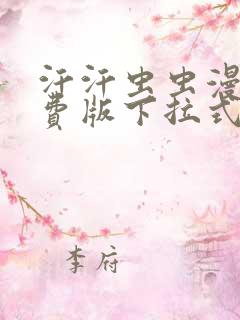 汗汗虫虫漫
费版下拉式
李府